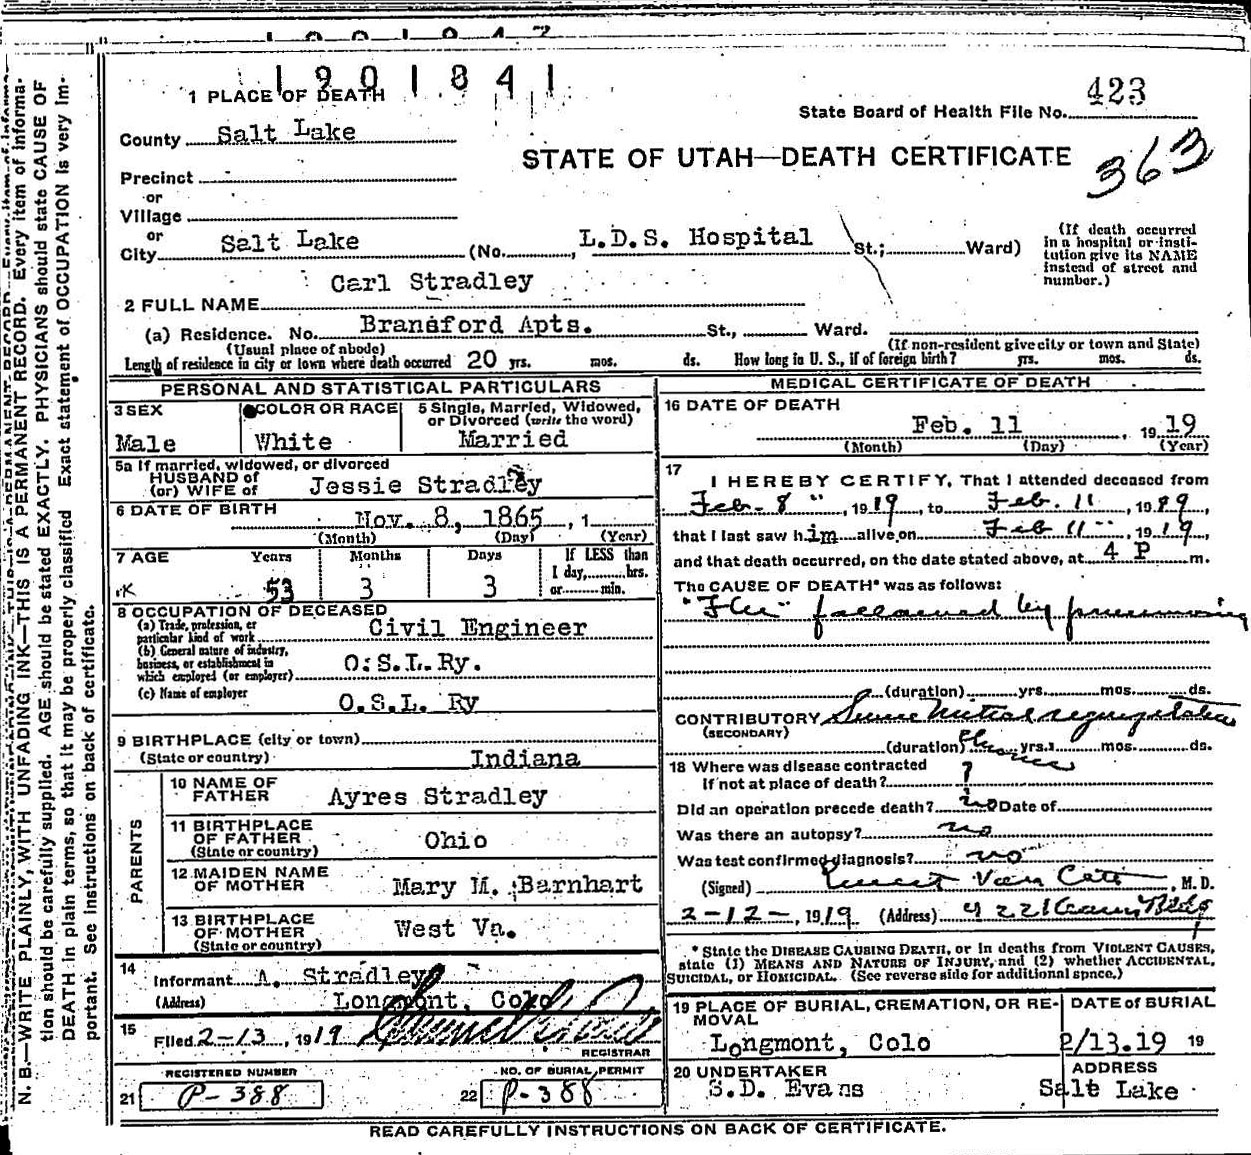 1901841
1 PLACE OF DEATH
State Board of Health File No. 423
County Salt Lake
STATE OF UTAH—DEATH CERTIFICATE
363
Precinct
or
Village
or
City Salt Lake (No. , L.D.S. Hospital St.; Ward)
(If death occurred in a hospital or insti-
tution give its NAME
instead of street and
number.)
Carl Stradley
2 FULL NAME
(a) Residence. No. Bransford Apts. St., Ward.
(Usual place of abode)
(If non-resident give city or town and State)
Length of residence in city or town where death occurred 20 yrs. mos. ds. How long in U. S., if of foreign birth? yrs. mos. ds.
PERSONAL AND STATISTICAL PARTICULARS
3 SEX
Male
COLOR OR RACE
White
5 Single, Married, Widowed,
or Divorced (write the word)
Married
5a If married, widowed, or divorced
HUSBAND of
(or) WIFE of Jessie Stradley
6 DATE OF BIRTH
Nov. 8, 1865, 1
(Month) (Day) (Year)
7 AGE Years Months Days If LESS than
1 day, hrs.
or min.
53 3 3
8 OCCUPATION OF DECEASED
(a) Trade, profession, or
particular kind of work Civil Engineer
(b) General nature of industry,
business, or establishment in
which employed (or employer) O.S.L.Ry.
(c) Name of employer
O.S.L. Ry
9 BIRTHPLACE (city or town)
(State or country) Indiana
PARENTS
10 NAME OF
FATHER Ayres Stradley
11 BIRTHPLACE
OF FATHER
(State or country) Ohio
12 MAIDEN NAME
OF MOTHER Mary M. Barnhart
13 BIRTHPLACE
OF MOTHER
(State or country) West Va.
14
Informant A. Stradley
(Address) Longmont, Colo
15
Filed 2-13, 1919
REGISTRAR
REGISTERED NUMBER
21 P-388
NO. OF BURIAL PERMIT
22 P-388
MEDICAL CERTIFICATE OF DEATH
16 DATE OF DEATH
Feb. 11, 1919
(Month) (Day) (Year)
17
I HEREBY CERTIFY, That I attended deceased from
Feb. 8", 1919, to Feb. 11, 1919,
that I last saw him alive on Feb 11", 1919,
and that death occurred, on the date stated above, at 4 P m.
The CAUSE OF DEATH* was as follows:
"Flu" followed by pneumonia
(duration) yrs. mos. ds.
CONTRIBUTORY Mitral regurgitation
(SECONDARY)
(duration) yrs. mos. ds.
18 Where was disease contracted
If not at place of death? ?
Did an operation precede death? no Date of
Was there an autopsy? no
Was test confirmed diagnosis? no
(Signed) Van Cott, M.D.
2-12-, 1919 (Address) 422 Kearns Bldg
* State the DISEASE CAUSING DEATH, or in deaths from VIOLENT CAUSES,
state (1) MEANS AND NATURE OF INJURY, and (2) whether ACCIDENTAL,
SUICIDAL, or HOMICIDAL. (See reverse side for additional space.)
19 PLACE OF BURIAL, CREMATION, OR RE-
MOVAL
Longmont, Colo
DATE of BURIAL
2/13.19 19
20 UNDERTAKER
S.D. Evans
ADDRESS
Salt Lake
READ CAREFULLY INSTRUCTIONS ON BACK OF CERTIFICATE.
N. B.—WRITE PLAINLY, WITH UNFADING INK—THIS IS A PERMANENT RECORD. Every item of informa-
tion should be carefully supplied. AGE should be stated EXACTLY. PHYSICIANS should state CAUSE OF
DEATH in plain terms, so that it may be properly classified. Exact statement of OCCUPATION is very im-
portant. See instructions on back of certificate.